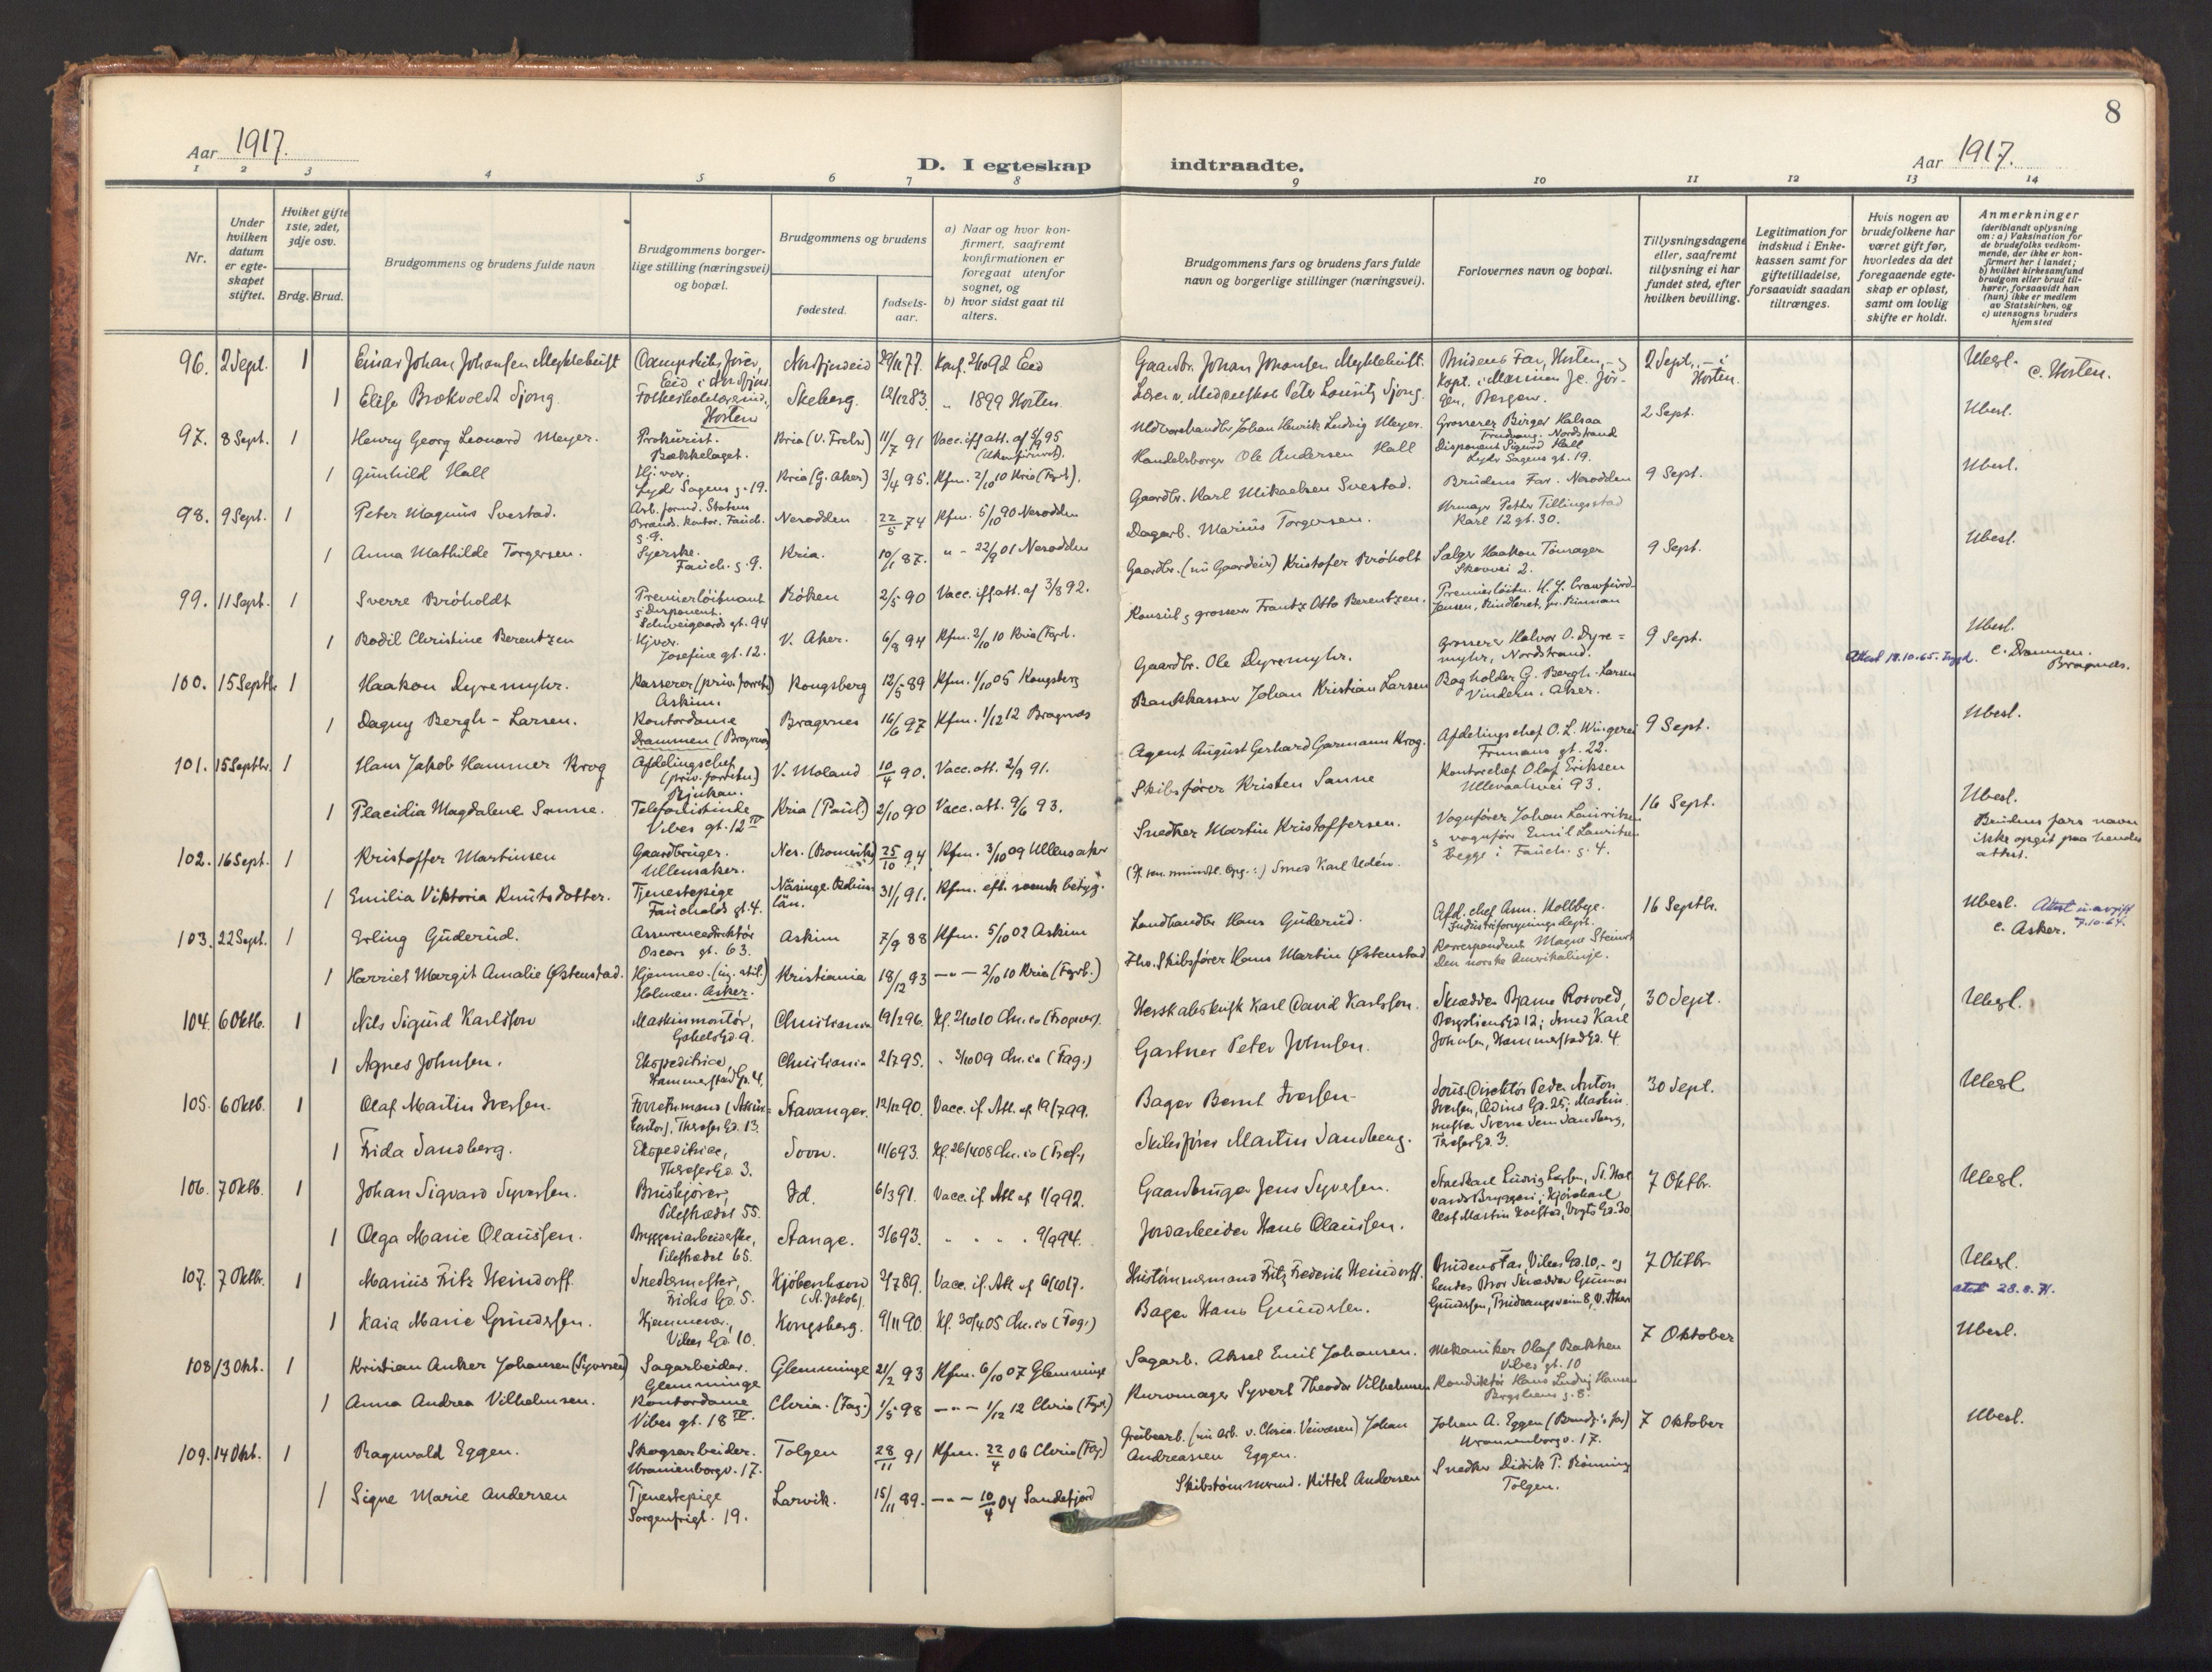 8
Aar 1917.
D. I egteskap indtraadte.
Aar 1917.
1 2 3 4 5 6 7 8 9 10 11 12 13 14
Nr.
Under hvilken datum er egteskapet stiftet.
Hviket gifte 1ste, 2det, 3dje osv.
Brdg. Brud.
Brudgommens og brudens fulde navn
Brudgommens borgerlige stilling (næringsvei) og bopæl.
Brudgommens og brudens
fødested.
fødselsaar.
a) Naar og hvor konfirmert, saafremt konfirmationen er foregaat utenfor sognet, og
b) hvor sidst gaat til alters.
Brudgommens fars og brudens fars fulde navn og borgerlige stillinger (næringsvei).
Forlovernes navn og bopæl.
Tillysningsdagene eller, saafremt tillysning ei har fundet sted, efter hvilken bevilling.
Legitimation for indskud i Enkekassen samt for giftetilladelse, forsaavidt saadan tiltrænges.
Hvis nogen av brudefolkene har været gift før, hvorledes da det foregaaende egteskap er opløst, samt om lovlig skifte er holdt.
Anmerkninger (deriblandt oplysning om: a) Vaksination for de brudefolks vedkommende, der ikke er konfirmert her i landet; b) hvilket kirkesamfund brudgom eller brud tilhører, forsaavidt han (hun) ikke er medlem av Statskirken, og c) utensogns bruders hjemsted
96. 2 Sept. 1 Einar Johan Johansen Myklebust Dampskibsfører, Eid i Nordfjord Nordfjordeid 29/11 77. Konf. 2/10 92 Eid Gaardbr. Johan Johansen Myklebust. Brudens Far, Horten, 2 Sept., i Horten. Ubesl. c. Horten.
1 Elise Brækvoldt Sjong Folkeskolelærerinde, Horten Skeberg. 12/12 83. " 1899 Horten
97. 8 Sept. 1 Henry Georg Leonard Meyer. Prokurist. Bækkelaget. Kria (V. Frelser) 11/7 91 Vacc. iflg att. af 3/9 95 (Ukonfirmert). Uldvarehandler Johan Henrik Ludvig Meyer. Grosserer Birger Halsaa Trudvang. Nordstrand 2 Sept. Ubesl.
1 Gunhild Hall Hjv. Lyder Sagens g. 19. Kria (G. Aker) 3/4 95. Kfm. 2/10 10 Kria (Fgrb.). Handelsborger Ole Andersen Hall Disponent Sigurd Hall Lyder Sagens gt. 19.
98. 9 Sept. 1 Peter Magnus Svestad. Arb. formd. Statens Brands. kontor. Fauch. g. 9. Nesodden 22/5 74 Kfm. 5/10 90 Nesodden Gaardbr. Karl Mikaelsen Svestad. Brudens Far. Nesodden 9 Sept. Ubesl.
1 Anna Mathilde Torgersen. Syerske. Fauch. g. 9. Kria. 10/1 87. " - 22/9 01 Nesodden Dagarb. Marius Torgersen. Urmager Petter Tillingsstad Karl 12 gt. 30.
99. 11 Sept. 1 Sverre Bröholdt Premierløitnant & Disponent. Schweigaards gt. 94 Röken 2/5 90 Vacc. iflg att. af 3/8 92. Gaardbr. (nu Gaardeier) Kristofer Bröholt Sælger Haakon Tönsager Skovvei 2. 9 Sept. Ubesl.
1 Bodil Christine Berentzen Hjv. Josefine gt. 12. V. Aker. 6/8 94 Kfm. 2/10 10 Kria (Fgrb. Konsul & grosserer Frantz Otto Berentzen. Premierløitn. H. J. Crawfurd-Jensen,
100. 15 Septb. 1 Haakon Dyremyhr. Kasserer (priv. forretn.) Askim. Kongsberg 12/5 89 Kfm. 1/10 05 Kongsberg Gaardbr. Ole Dyremyhr. Grosserer Halvor O. Dyremyhr, Nordstrand. 9 Sept. Attest 18.10.65. Trygd. Ubesl. c. Drammen. Bragenæs.
1 Dagny Bergh-Larsen. Kontordame Drammen (Bragernæs) Bragernes 16/6 97 Kfm. 1/12 12 Bragenæs Bankkasserer Johan Kristian Larsen Bogholder G. Bergh-Larsen Vindern. Aker.
101. 15 Septbr. 1 Hans Jakob Hammer Krog Afdelingschef (priv. forretn.) Rjukan. V. Moland 10/4 90. Vacc. att. 2/9 91. Agent August Gerhard Garmann Krog. Afdelingschef O. L. Wingerei Frimans gt. 22. 9 Sept. Ubesl.
1 Placidia Magdalene Sanne. Telefonistinde Vibes gt. 12 IV Kria (Paul) 2/10 90 Vacc. att. 9/6 93. Skibsfører Kristen Sanne Kontorchef Olaf Eriksen Ullevaalsvei 93.
102. 16 Sept. 1 Kristoffer Martinsen Gaardbruger. Ullensaker. Nes. (Romerike) 25/10 94 Kfm. 3/10 09 Ullensaker Snedker Martin Kristoffersen. Vognfører Johan Lauritzen & vognfører Emil Lauritzen begge i Fauch. g. 4. 16 Sept. Ubesl. Brudens fars navn ikke opgit paa hendes attest.
1 Emilia Viktoria Knutsdotter. Tjenestepige Faucholds gt. 4. Näsinge. län. 31/1 91. Kfm. eft. svensk betyg. Smed Karl Udén.
103. 22 Sept. 1 Erling Guderud. Assurancedirektör Oscars gt. 63. Askim 7/9 88 Kfm. 5/10 02 Askim Landhandler Hans Guderud. Afd. chef Arn. Hollbye. 16 Septbr. Ubesl. c. Asker. 7.10.64.
1 Harriet Margit Amalie Östenstad. Hjemmev. (ing. stil.) Holmen. Asker. Kristiania 18/12 93 — " — 2/10 10 Kria (Fgrb.) Skibsfører Hans Martin Östenstad Korrespondent Den norske Amerikalinje.
104. 6 Oktb. 1 Nils Sigurd Karlsson Maskinmontör, Christiania 19/12 96. Kf. 2/10 10 Chr.ia (Frogner). Herskabskusk Karl David Karlsson. Skrædder Bjarne Rosvold, Bergsliens Gd. 12; Smed Karl Johnsen, Hammerstad Gd. 4. 30 Sept. Ubesl.
1 Agnes Johnsen. Ekspeditrice, Hammerstad Gd. 4. Christiania 2/7 95. " 3/10 09 Chr.ia (Fag.) Gartner Peter Johnsen.
105. 6 Oktb. 1 Olaf Martin Iversen. Forretnmand Thereses Gd. 13. Stavanger. 12/12 90. Vacc. if. Att. af 19/7 99. Bager Bernt Iversen. Direktör Peder Anton Iversen, Odins Gd. 25; Sverre Jens Sandberg, Thereses Gd. 3. 30 Sept. Ubesl.
1 Frida Sandberg. Ekspeditrice, Thereses Gd. 3. Soon. 11/6 93. Kf. 26/4 08 Chr.ia Skibsfører Martin Sandberg.
106. 7 Oktb. 1 Johan Sigvard Syversen. Bruskjører, Pilestrædet 55. Id. 6/3 91. Vacc. if. Att. af 1/9 92. Gaardbruger Jens Syversen. 7 Oktbr. Ubesl.
1 Olga Marie Olaussen. Bryggeriarbeiderske, Pilestrædet 65. Stange. 3/6 93. " " " " 9/9 94. Jordarbeider Hans Olaussen.
107. 7 Oktbr. 1 Marius Fritz Heindorff Snedkermester, Frichs Gd. 5. Kjöbenhavn (St. Jakob). 2/7 89. Vacc. if. Att. af 6/10 17. Hustömmermand Fritz Frederik Heindorff. Brudens Far, Vibes Gd. 10, og hendes Bror Skrædder Gunnar Gundersen, Trudvangsveien 8, V. Aker 7 Oktbr. Ubesl. attest 28.8.71.
1 Kaia Marie Gundersen. Hjemmeværende, Vibes Gd. 10. Kongsberg. 9/11 90. Kf. 30/4 05 Chr.ia (Fag.) Bager Hans Gundersen.
108 13 Okt. 1 Kristian Anker Johansen (Syversen) Sagarbeider. Glemminge Glemminge 21/2 93 Kfm. 6/10 07 Glemminge Sagarb. Aksel Emil Johansen. Mekaniker Olaf Bakken Vibes gt. 10 7 Oktober Ubesl.
1 Anna Andrea Vilhelmsen. Kontordame Vibes gt. 18 IV. Chria. (Fag.) 1/5 98 — " — 1/12 12 Chria (Fgrb.) Kurvmager Syvert Theodor Vilhelmsen Konduktör Hans Ludvig Hansen Bergsliens g. 8.
109. 14 Okt. 1 Ragnvald Eggen. Skogsarbeider. Uranienborgv. 17. Tolgen 28/11 91 Kfm. 22/4 06 Chria (Fag.) Grubearb. (nu arb. v. Chria. Veivæsen) Johan Andreassen Eggen. Johan A. Eggen (Brudg.'s far) Uranienborgv. 17. 7 Oktober Ubesl.
1 Signe Marie Andersen Tjenestepige Sorgenfrigt. 19. Larvik. 15/11 89. — " — 10/4 04 Sandefjord Skibstømmermd. Kittel Andersen Snedker Didrik P. Rönning Tolgen.